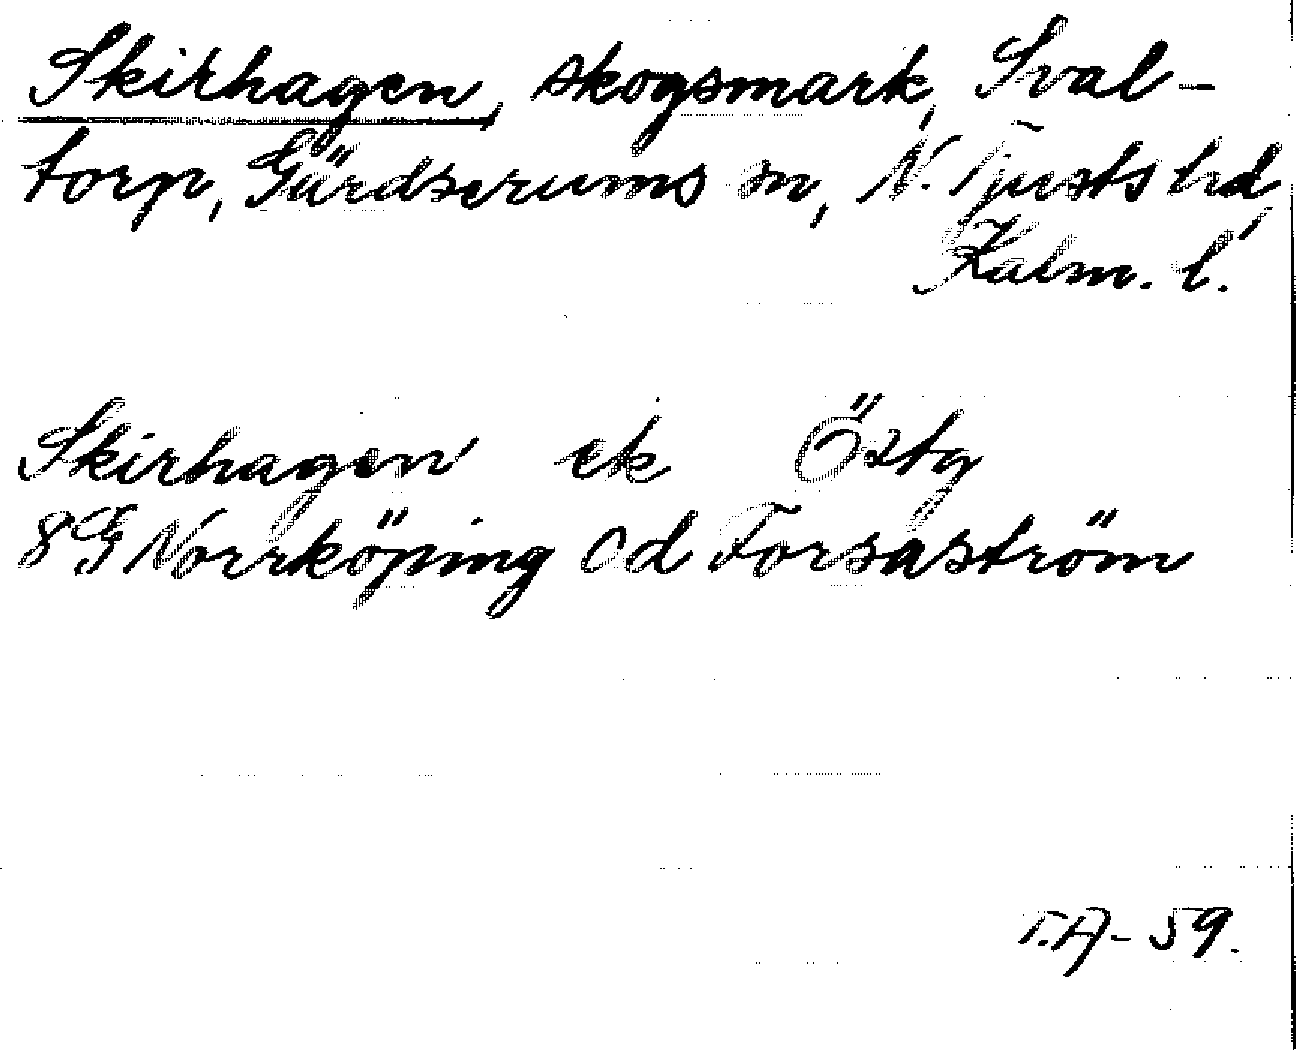 Skirhagen, skogsmark, Sval-
torp, Gärdserums sn, N. Tjusts hd,
Kalm. l.
Skirhagen ek Östg
8G Norrköping 0d Forsaström
T.A - 59.